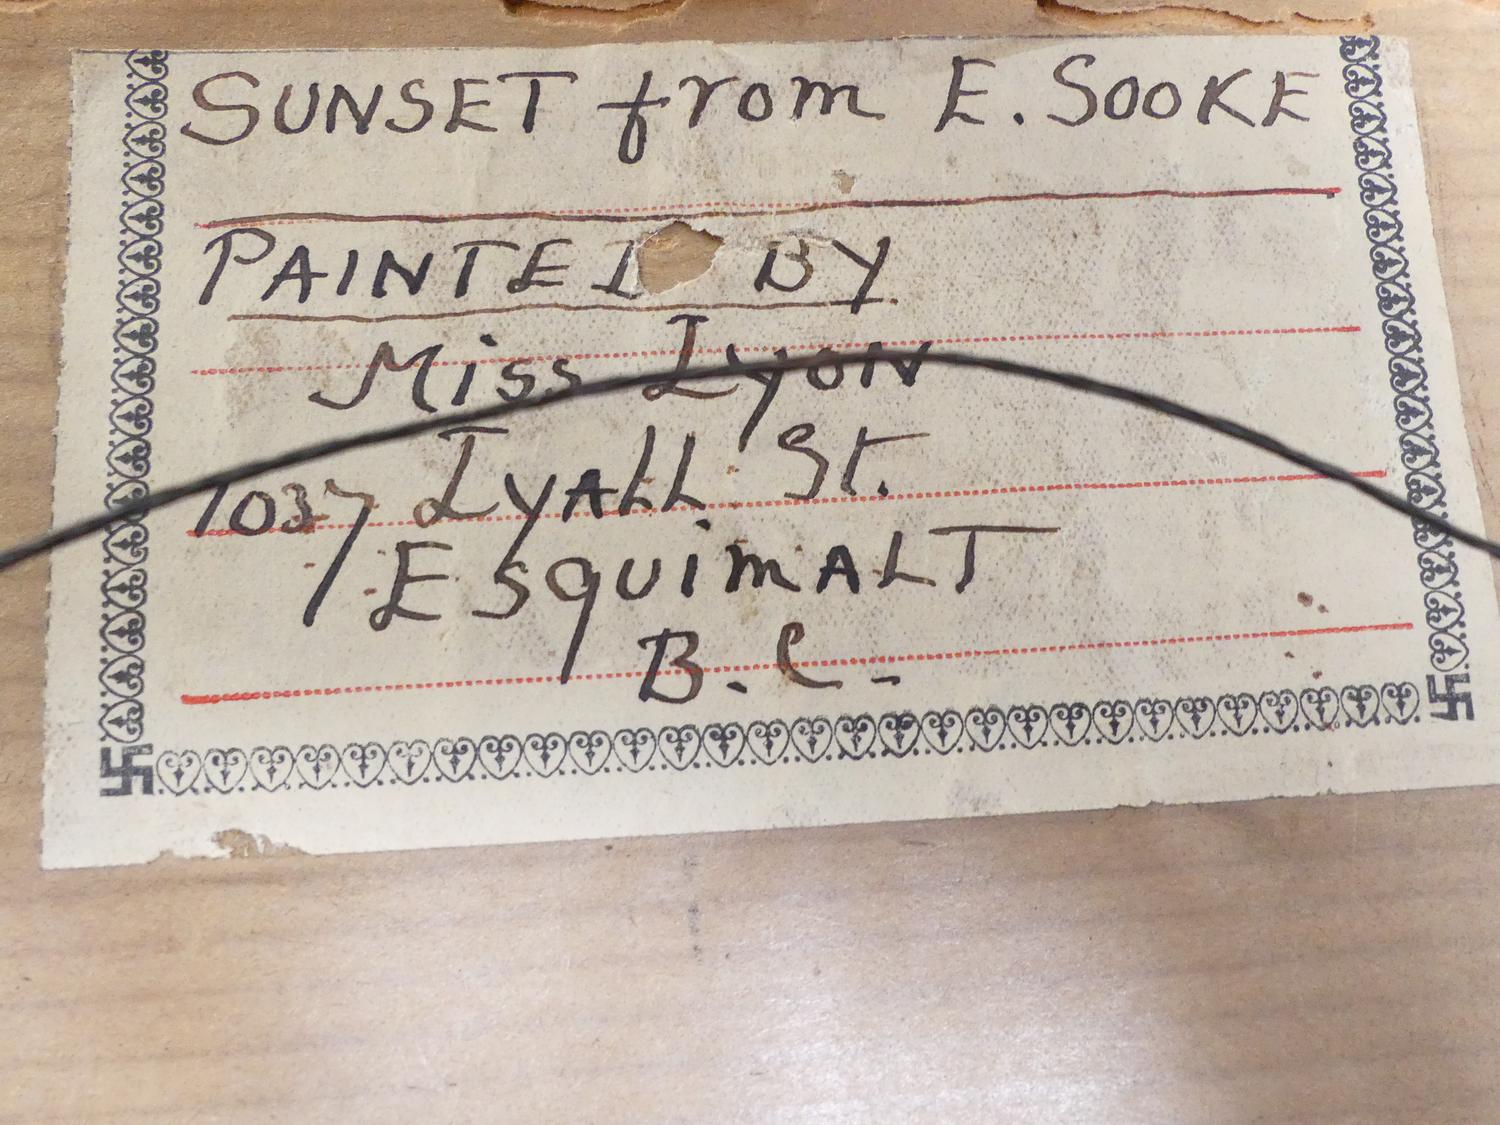 SUNSET from E. SOOKE
PAINTED BY
Miss Lyon
1037 Lyall St.
Esquimalt
B.C.